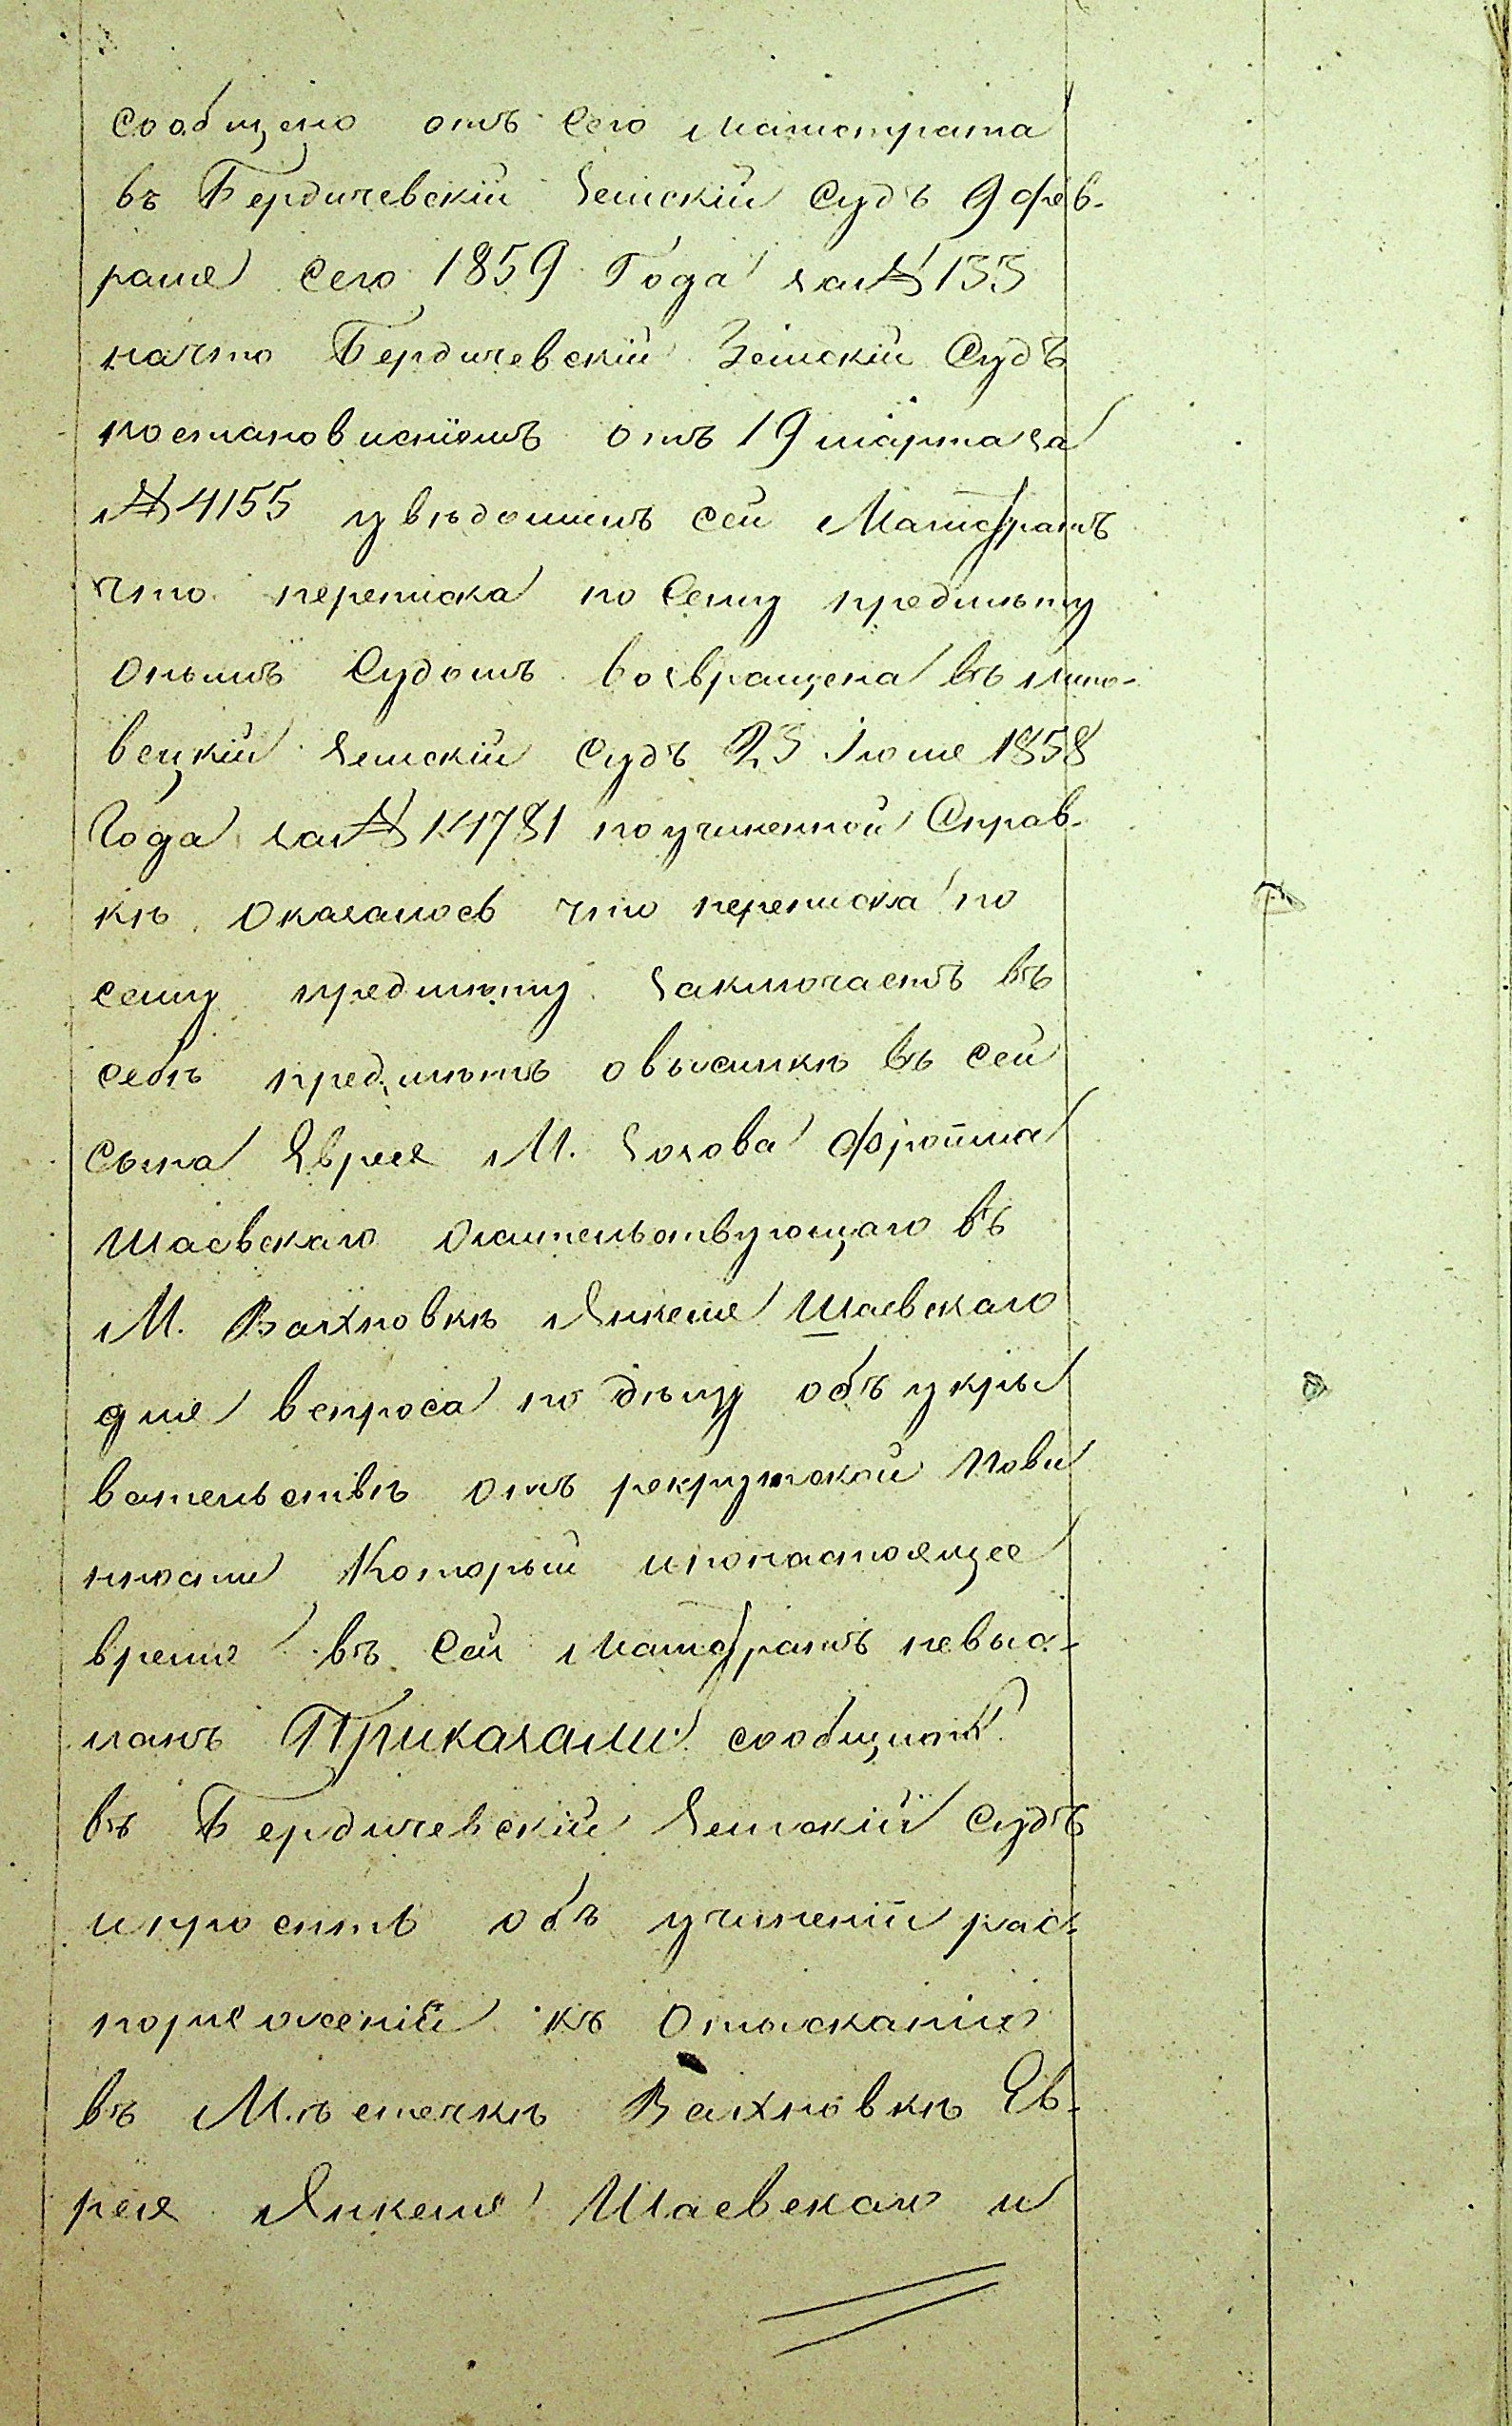 сообщено отъ сего магистрата
въ Бердичевскій Земскій Судъ 9 Фев-
раля сего 1859 Года за № 133
начто Бердичевскій Земскій Судъ
постановленіемъ отъ 19 марта за
№ 4155 увѣдомилъ сей Магистратъ
что переписка по сему предмѣту
онымъ Судомъ возвращена въ Липо-
вецкій Земскій Судъ 23 Іюля 1858
Года за № 14781 поучиненной Справ-
кѣ Оказалось что переписка по
сему предмѣту заключаетъ въ
себѣ предмѣтъ овысылкѣ въ сей
сына Еврея М. Зозова Фроима
Шаевскаго жительствующаго въ
М. Вахновкѣ Янкеля Шаевскаго
для вспроса по дѣлу объ укры
вательствѣ отъ рекрутской Пови
нности Который ипонастоящее
время въ сей магистратъ невыс-
ланъ Приказали сообщить
въ Бердичевскій Земскій Судъ
ипросить объ учиненіи рас-
поряженій къ Отысканію
въ Мѣстечкѣ Вахновкѣ Ев-
рея Янкеля Шаевскаго и